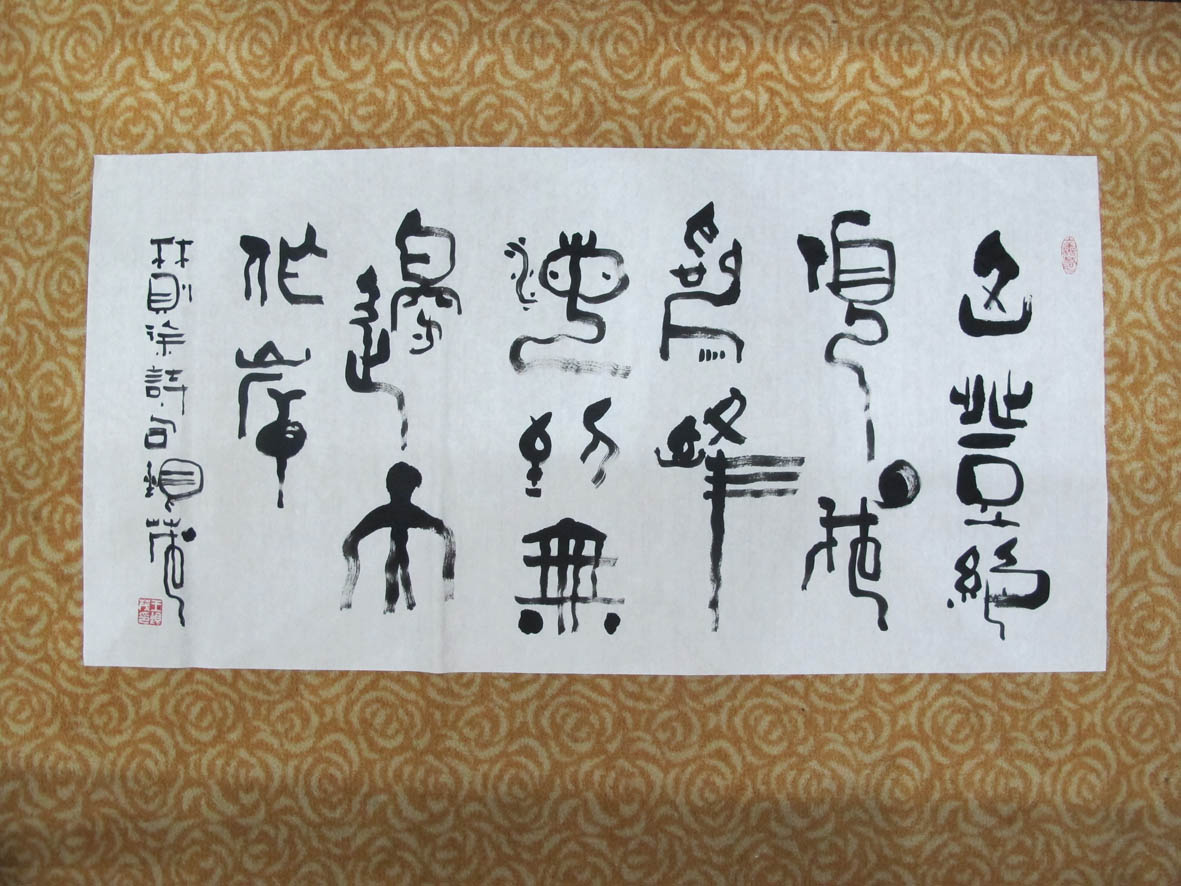 山登絕
頂我
為峰
海到無
邊天
作岸
林則徐詩句